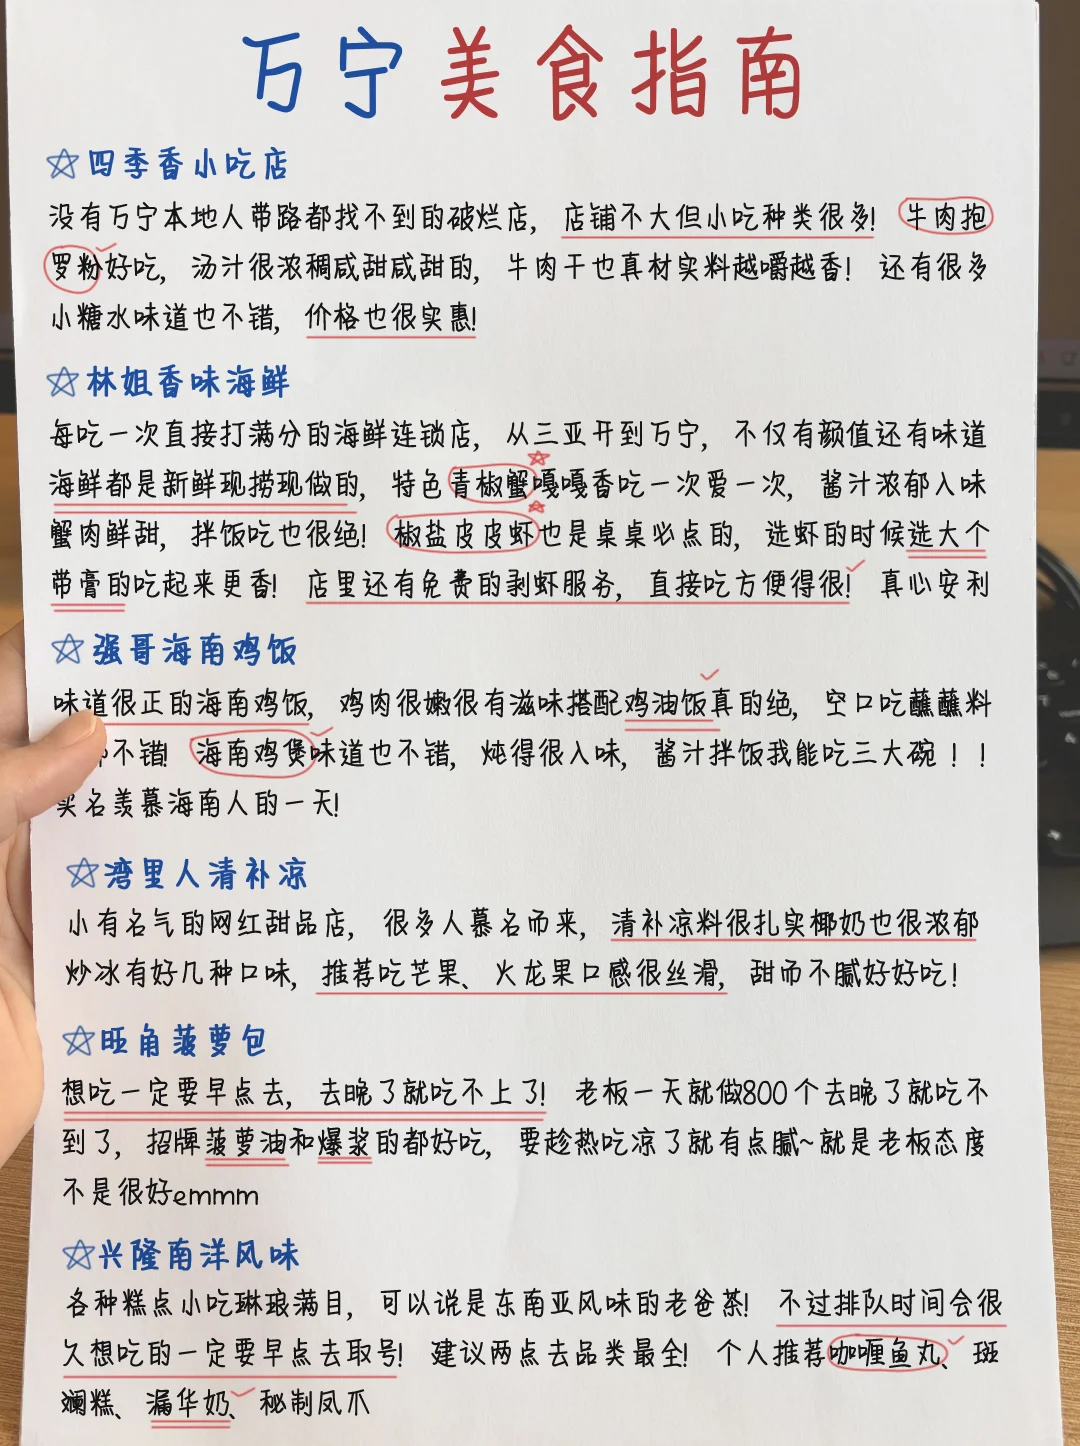 万宁美食指南
四季香小吃店
没有万宁本地人带路都找不到的破烂店，店铺不大但小吃种类很多！牛肉抱
罗粉好吃，汤汁很浓稠咸甜咸甜的，牛肉干也真材实料越嚼越香！还有很多
小糖水味道也不错，价格也很实惠！
林姐香味海鲜
每吃一次直接打满分的海鲜连锁店，从三亚开到万宁，不仅有颜值还有味道
海鲜都是新鲜现捞现做的，特色青椒蟹嘎嘎香吃一次爱一次，酱汁浓郁入味
蟹肉鲜甜，拌饭吃也很绝！椒盐皮皮虾也是桌桌必点的，选虾的时候选大个
带膏的吃起来更香！店里还有免费的剥虾服务，直接吃方便得很！真心安利
强哥海南鸡饭
味道很正的海南鸡饭，鸡肉很嫩很有滋味搭配鸡油饭真的绝，空口吃蘸蘸料
都不错！海南鸡煲味道也不错，炖得很入味，酱汁拌饭我能吃三大碗！！
实名羡慕海南人的一天！
湾里人清补凉
小有名气的网红甜品店，很多人慕名而来，清补凉料很扎实椰奶也很浓郁
炒冰有好几种口味，推荐吃芒果、火龙果口感很丝滑，甜而不腻好好吃！
旺角菠萝包
想吃一定要早点去，去晚了就吃不上了！老板一天就做800个去晚了就吃不
到了，招牌菠萝油和爆浆的都好吃，要趁热吃凉了就有点腻~就是老板态度
不是很好emmm
兴隆南洋风味
各种糕点小吃琳琅满目，可以说是东南亚风味的老爸茶！不过排队时间会很
久想吃的一定要早点去取号！建议两点去品类最全！个人推荐咖喱鱼丸、斑
斓糕、漏华奶、秘制凤爪